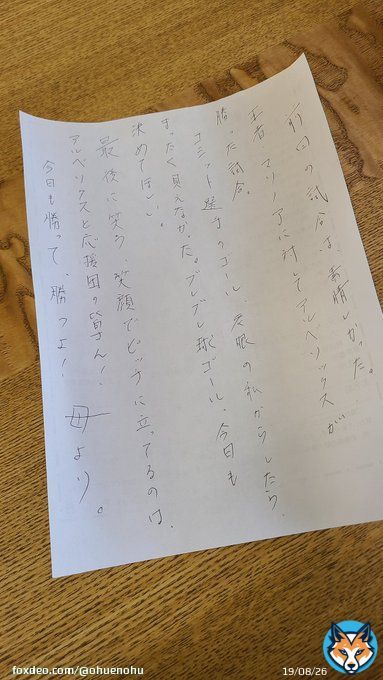 前回の試合は、素晴しかった。
王者、マリノアに対してアルベックスが
勝った試合。
ナミット選手のゴール、老眼の私からしたら、
まったく見えなかった。ブレブレ球ゴール、今日も
決めてほしい。
最後に笑う、笑顔でピッチに立ってるのは、
アルベックスと応援団の皆さん!
今日も勝って、勝つよ!
母より。
foxdeo.com/@ohuenohu
19/08/26